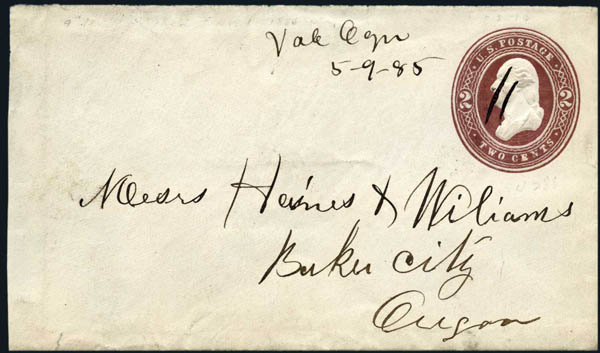 Vale Ogn
5-9-85
U.S. POSTAGE
2 2
TWO CENTS
Messrs Heines & Wiliams
Baker City
Oregon